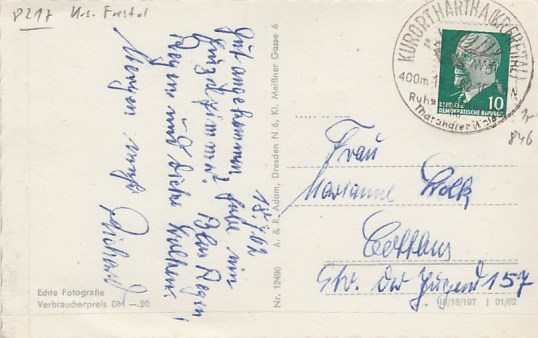 P217 Krs. Freital
KURORT HARTHA (KRS. FREITAL)
400m
Tharandter Wald
10
DEUTSCHE
DEMOKRATISCHE REPUBLIK
846
18/4.62
Gut angekommen, habe ein
Einzelzimmer. Aber Regen,
Regen und dicke Wolken!
Morgen mehr
Richard
Frau
Marianne Wolk
Cottbus
Str. der Jugend 157
Nr. 12490 A. & R. Adam, Dresden N 6, Kl. Meißner Gasse 6
Echte Fotografie
Verbraucherpreis DM —.20
III/18/197 J 01/62